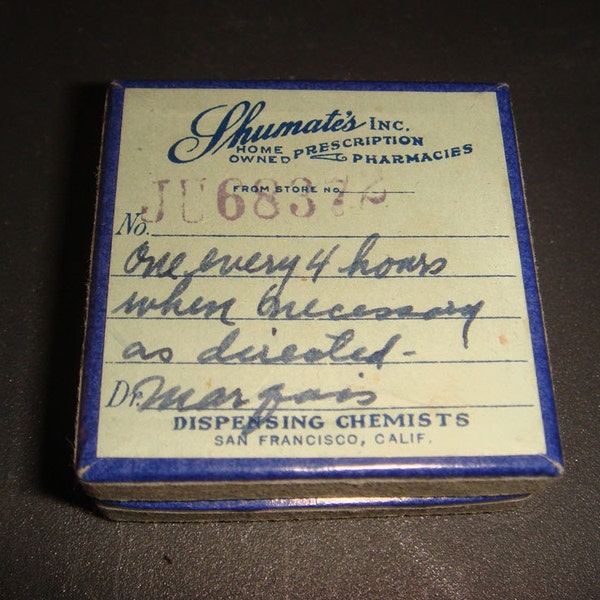 Shumate's INC.
HOME OWNED PRESCRIPTION PHARMACIES
FROM STORE No.
No. JU68372
One every 4 hours
when necessary
as directed-
Dr.
DISPENSING CHEMISTS
SAN FRANCISCO, CALIF.